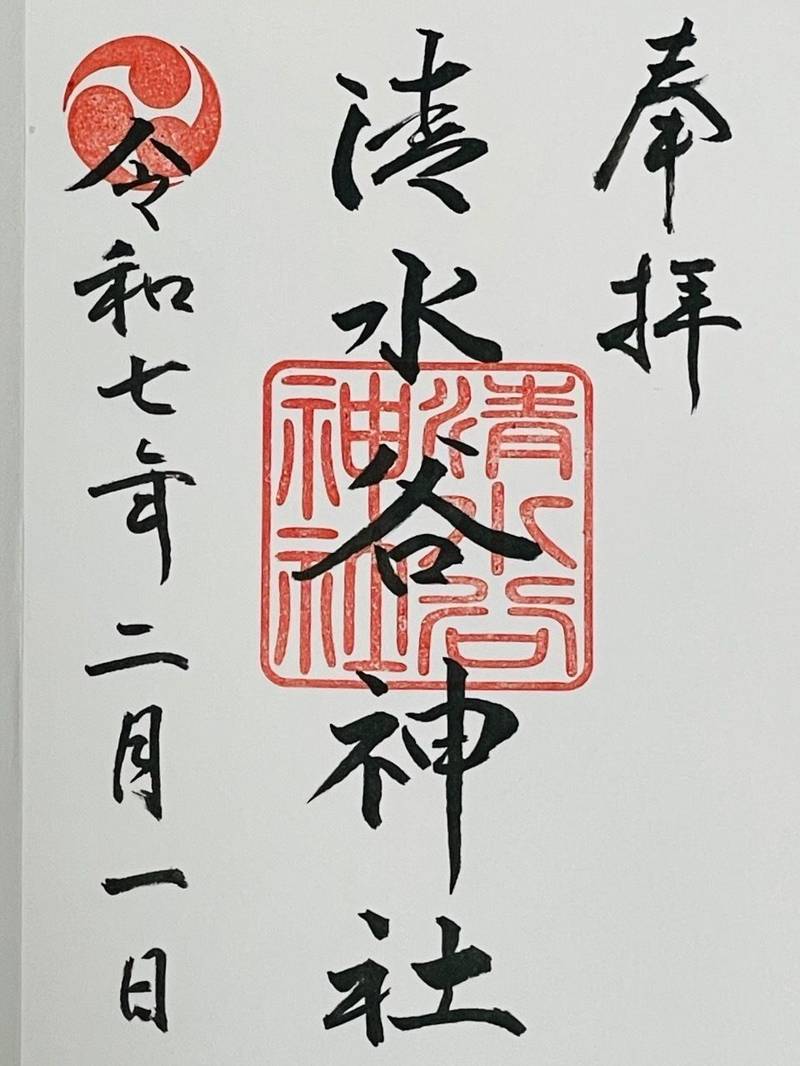 奉拝
清水谷神社
清水谷
神社
令和七年二月一日